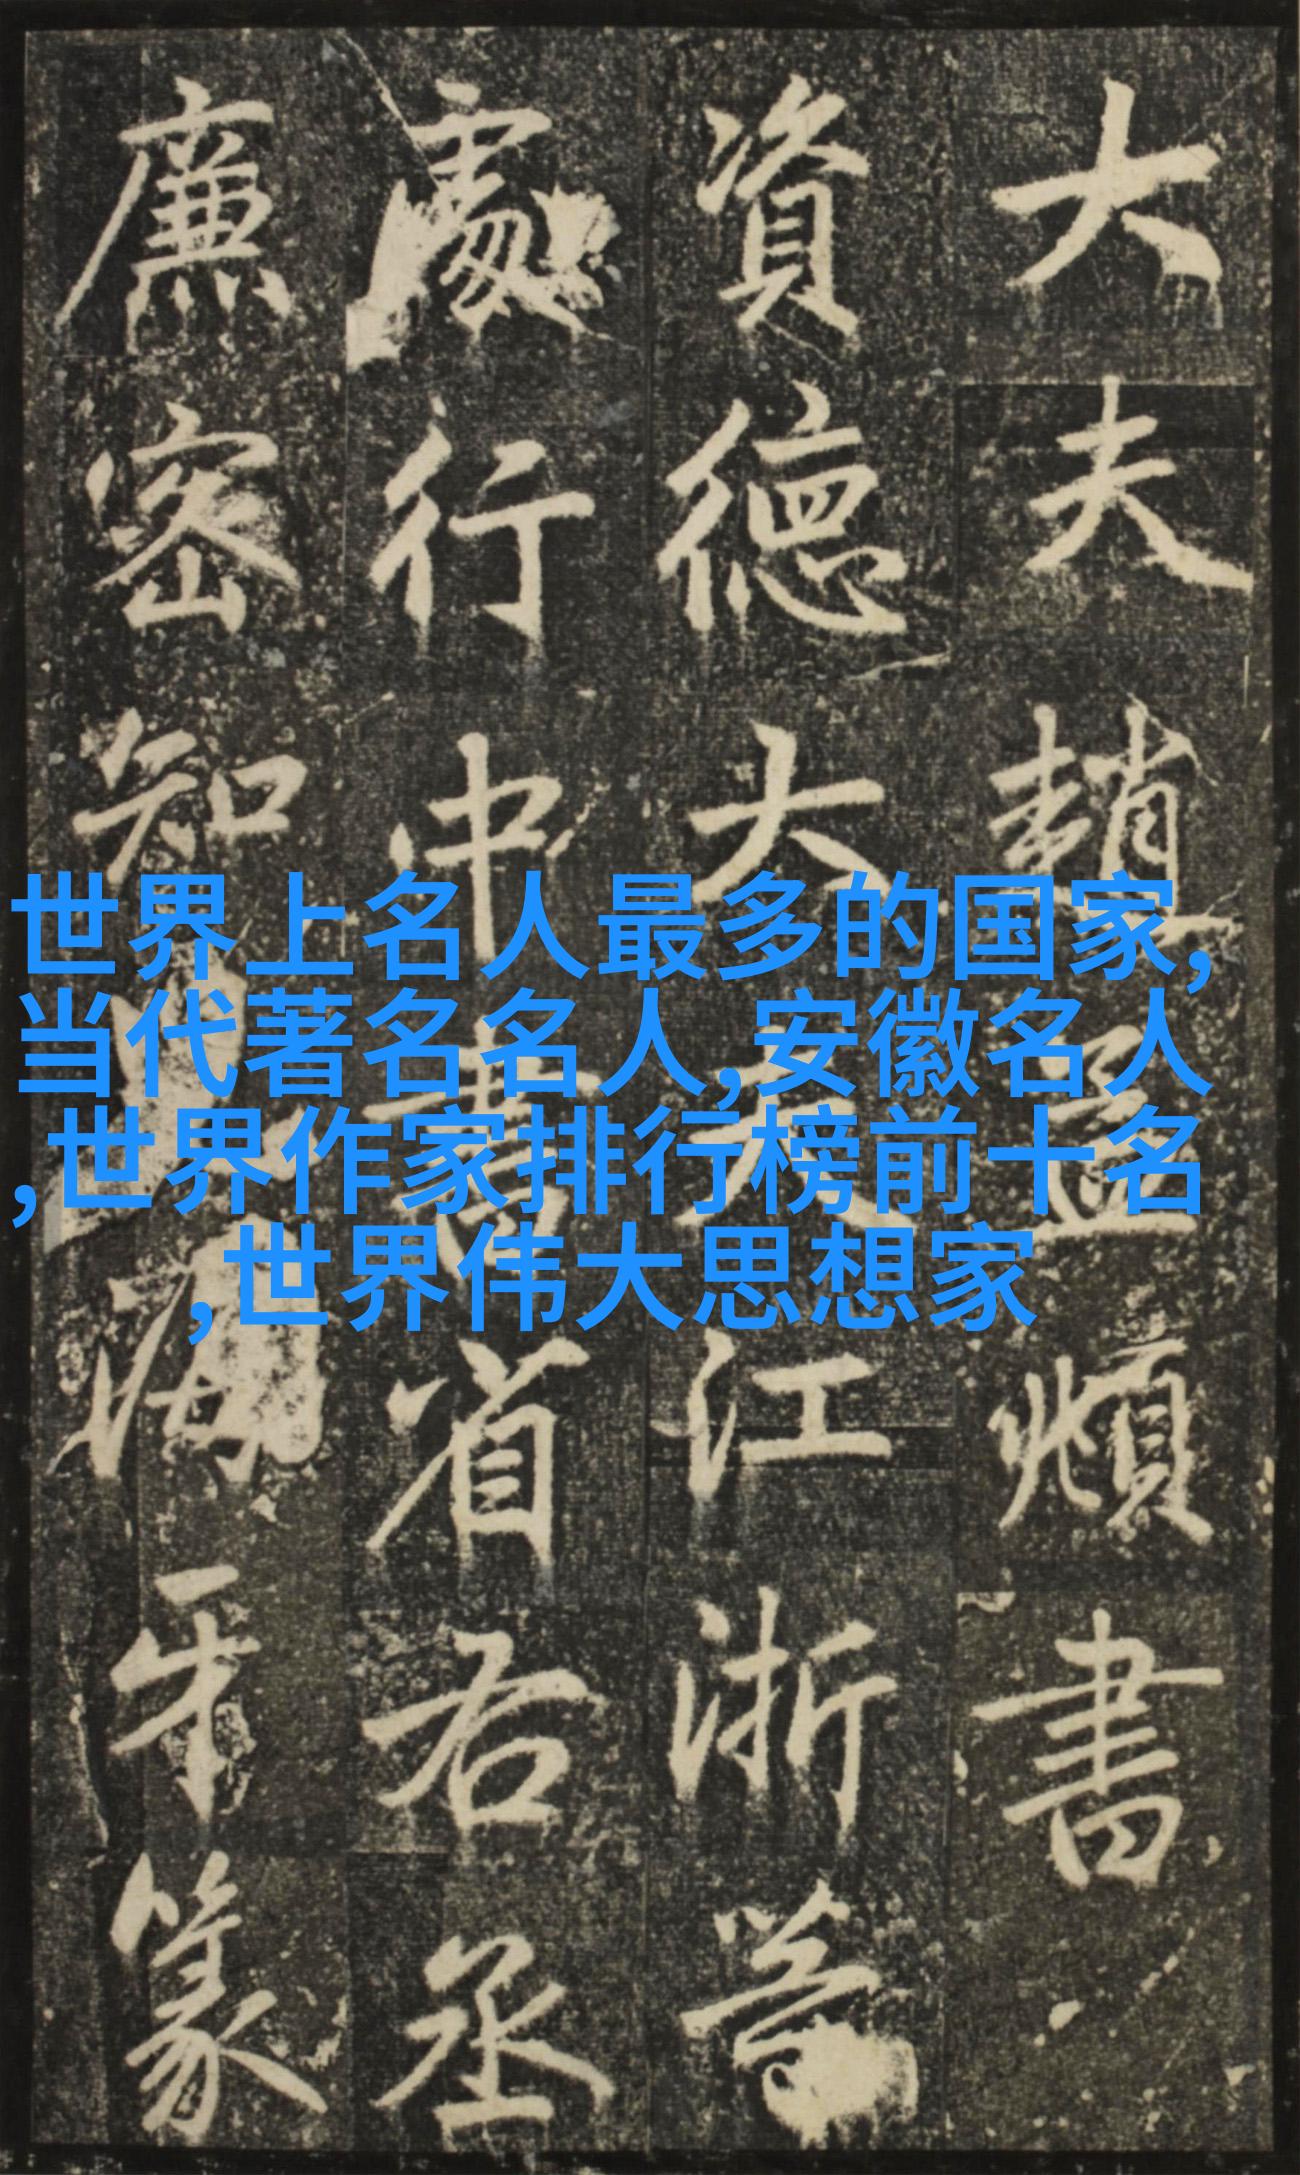 大夫趙孟頫書
資德大夫江浙等
處行中書省右丞
廉密知海牙篆
世界上名人最多的国家,
当代著名名人,安徽名人
,世界作家排行榜前十名
,世界伟大思想家